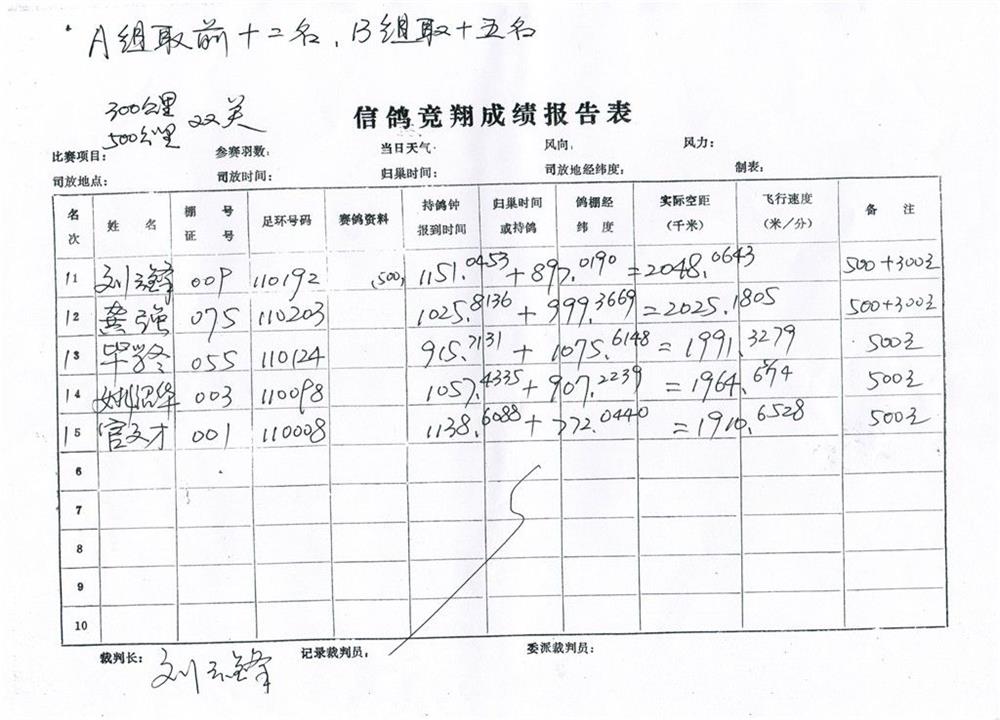 A组取前十二名、B组取十五名
300公里
500公里 双关
信鸽竞翔成绩报告表
比赛项目: 参赛羽数: 当日天气: 风向: 风力:
司放地点: 司放时间: 归巢时间: 司放地经纬度: 制表:
名次 姓名 棚号证号 足环号码 赛鸽资料 持鸽钟报到时间 归巢时间或持鸽 鸽棚经纬度 实际空距(千米) 飞行速度(米/分) 备注
11 刘云锋 009 110192 500, 1151.0453 + 897.0190 = 2048.0643 500+300元
12 龚强 075 110203 1025.8136 + 999.3669 = 2025.1805 500+300元
13 055 110124 915.7131 + 1075.6148 = 1991.3279 500元
14 姚绍华 003 110098 1057.4335 + 907.2239 = 1964.6574 500元
15 官文才 001 110008 1138.6088 + 772.0440 = 1910.6528 500元
6
7
8
9
10
裁判长: 刘云锋 记录裁判员: 委派裁判员: